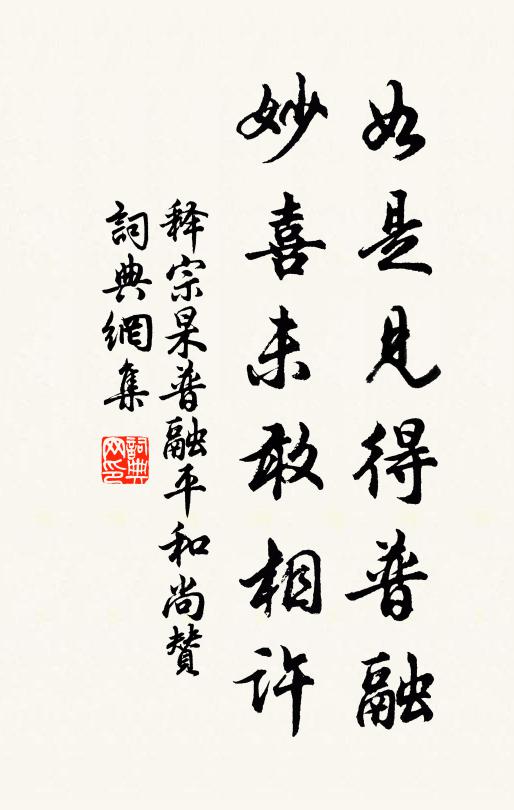 如是見得普融
妙喜未敢相許
释宗杲普融平和尚贊
詞典網集
詞典网印